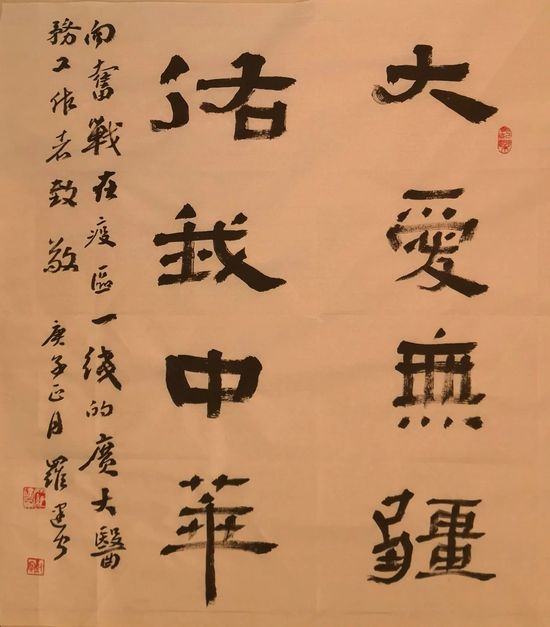 大愛無疆
佑我中華
向奮戰在疫區一线的廣大醫
務工作者致敬 庚子正月 羅建